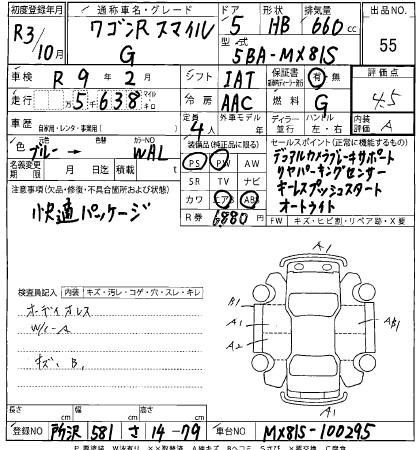 初度登録年月 通称車名・グレード ドア 形状 排気量 出品NO.
R3/10月 ワゴンR スマイル G 5 HB 660cc 55
型式 5BA-MX81S
車検 R 9年 2月 シフト IAT 保証書 有 無 評価点 4.5
走行 5,638 マイル キロ 冷房 AAC 燃料 G 内装評価 A
車歴 自家用・レンタ・事業用( ) 定員 4人 外車モデル 年 ディーラー 並行 ハンドル 左・右
色 ブルー → カラーNO WAL 装備品(純正品に限る) セールスポイント(正常に機能するもの)
名義変更期限 月 日 積載 kg PS PW AW
SR TV ナビ
カワ エアB ABS
R券 6880円
デュアルカメラブレーキサポート
リヤパーキングセンサー
キーレスプッシュスタート
オートライト
FW キズ・ヒビ割・リペア跡・X要
注意事項(欠品・修復・不具合箇所および状態)
快適パッケージ
検査員記入 内装 キズ・汚レ・コゲ・穴・スレ・キレ
オーディオレス
W/C-A
キズ B1
A1
B1
A1
A2
AB1
A1
長さ cm 幅 cm 高さ cm
登録NO 所沢 581 さ 14-79 車台NO MX81S-100295